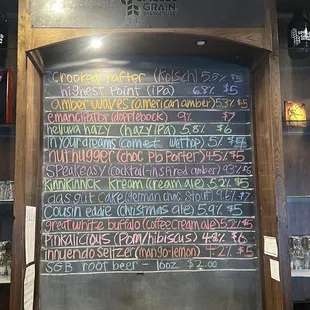 GRAIN
crooked rafter (Kolsch) 5.8% $5
highest Point (iPa) 6.8% $5
amber waves (american amber) 5.3% $5
emancipator (dopplebock) 9% $7
helluva hazy (hazy iPa) 6.8% $6
in your dreams (comet wet hop) 5%
nut hugger (choc pb Porter) 4.5% $5
speakeasy (cocktail-inspired amber) 9.3%
Kinnikinnick Kream (cream ale) 5.2% $5
cake (german choc stout) $7
cousin eddie (christmas ale) 5.9% $5
great white buffalo (coffee cream ale) 5.2%
Pinkalicious (Pom/hibiscus) 4.8% $6
innuendo seltzer (mango-lemon) $5
root beer - 16oz $2.00